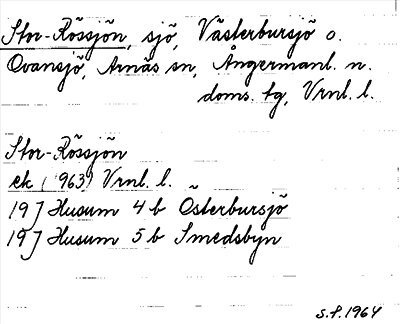 Stor-Rössjön, sjö, Västerbursjö o.
Ovansjö, Arnäs sn, Ångermanl. n.
doms. tg, Vrnl. l.
Stor-Rössjön
ek (1963) Vrnl. l.
19 J Husum 4 b Österbursjö
19 J Husum 5 b Smedsbyn
S.F. 1964